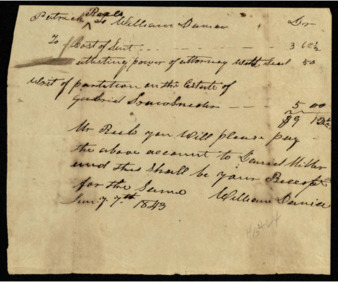 Reels
to William Dania Dr
To Cost of Suit 3 62½
attesting power of attorney with Seal 50
Cost of partition on the Estate of
5 00
$9 12½
Mr Reels you Will please pay
the above account to Daniel Miller
and this Shall be your Receipt
for the Same William Dania
7th 1843